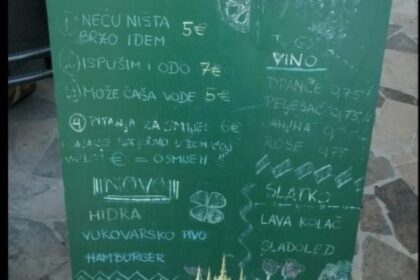 1) NEĆU NIŠTA 5€
BRZO IDEM
2) ISPUŠIM I ODO 7€
3) MOŽE ČAŠA VODE 5€
4) PITANJA ZA SMIJEH 6€
€ = OSMIJEH
NOVO
HIDRA
VUKOVARSKO PIVO
HAMBURGER
VINO
DRANČE 9,75
PELJEŠAC 9,75
9,75
ROSE 9,75
SLATKO
LAVA KOLAČ
SLADOLED